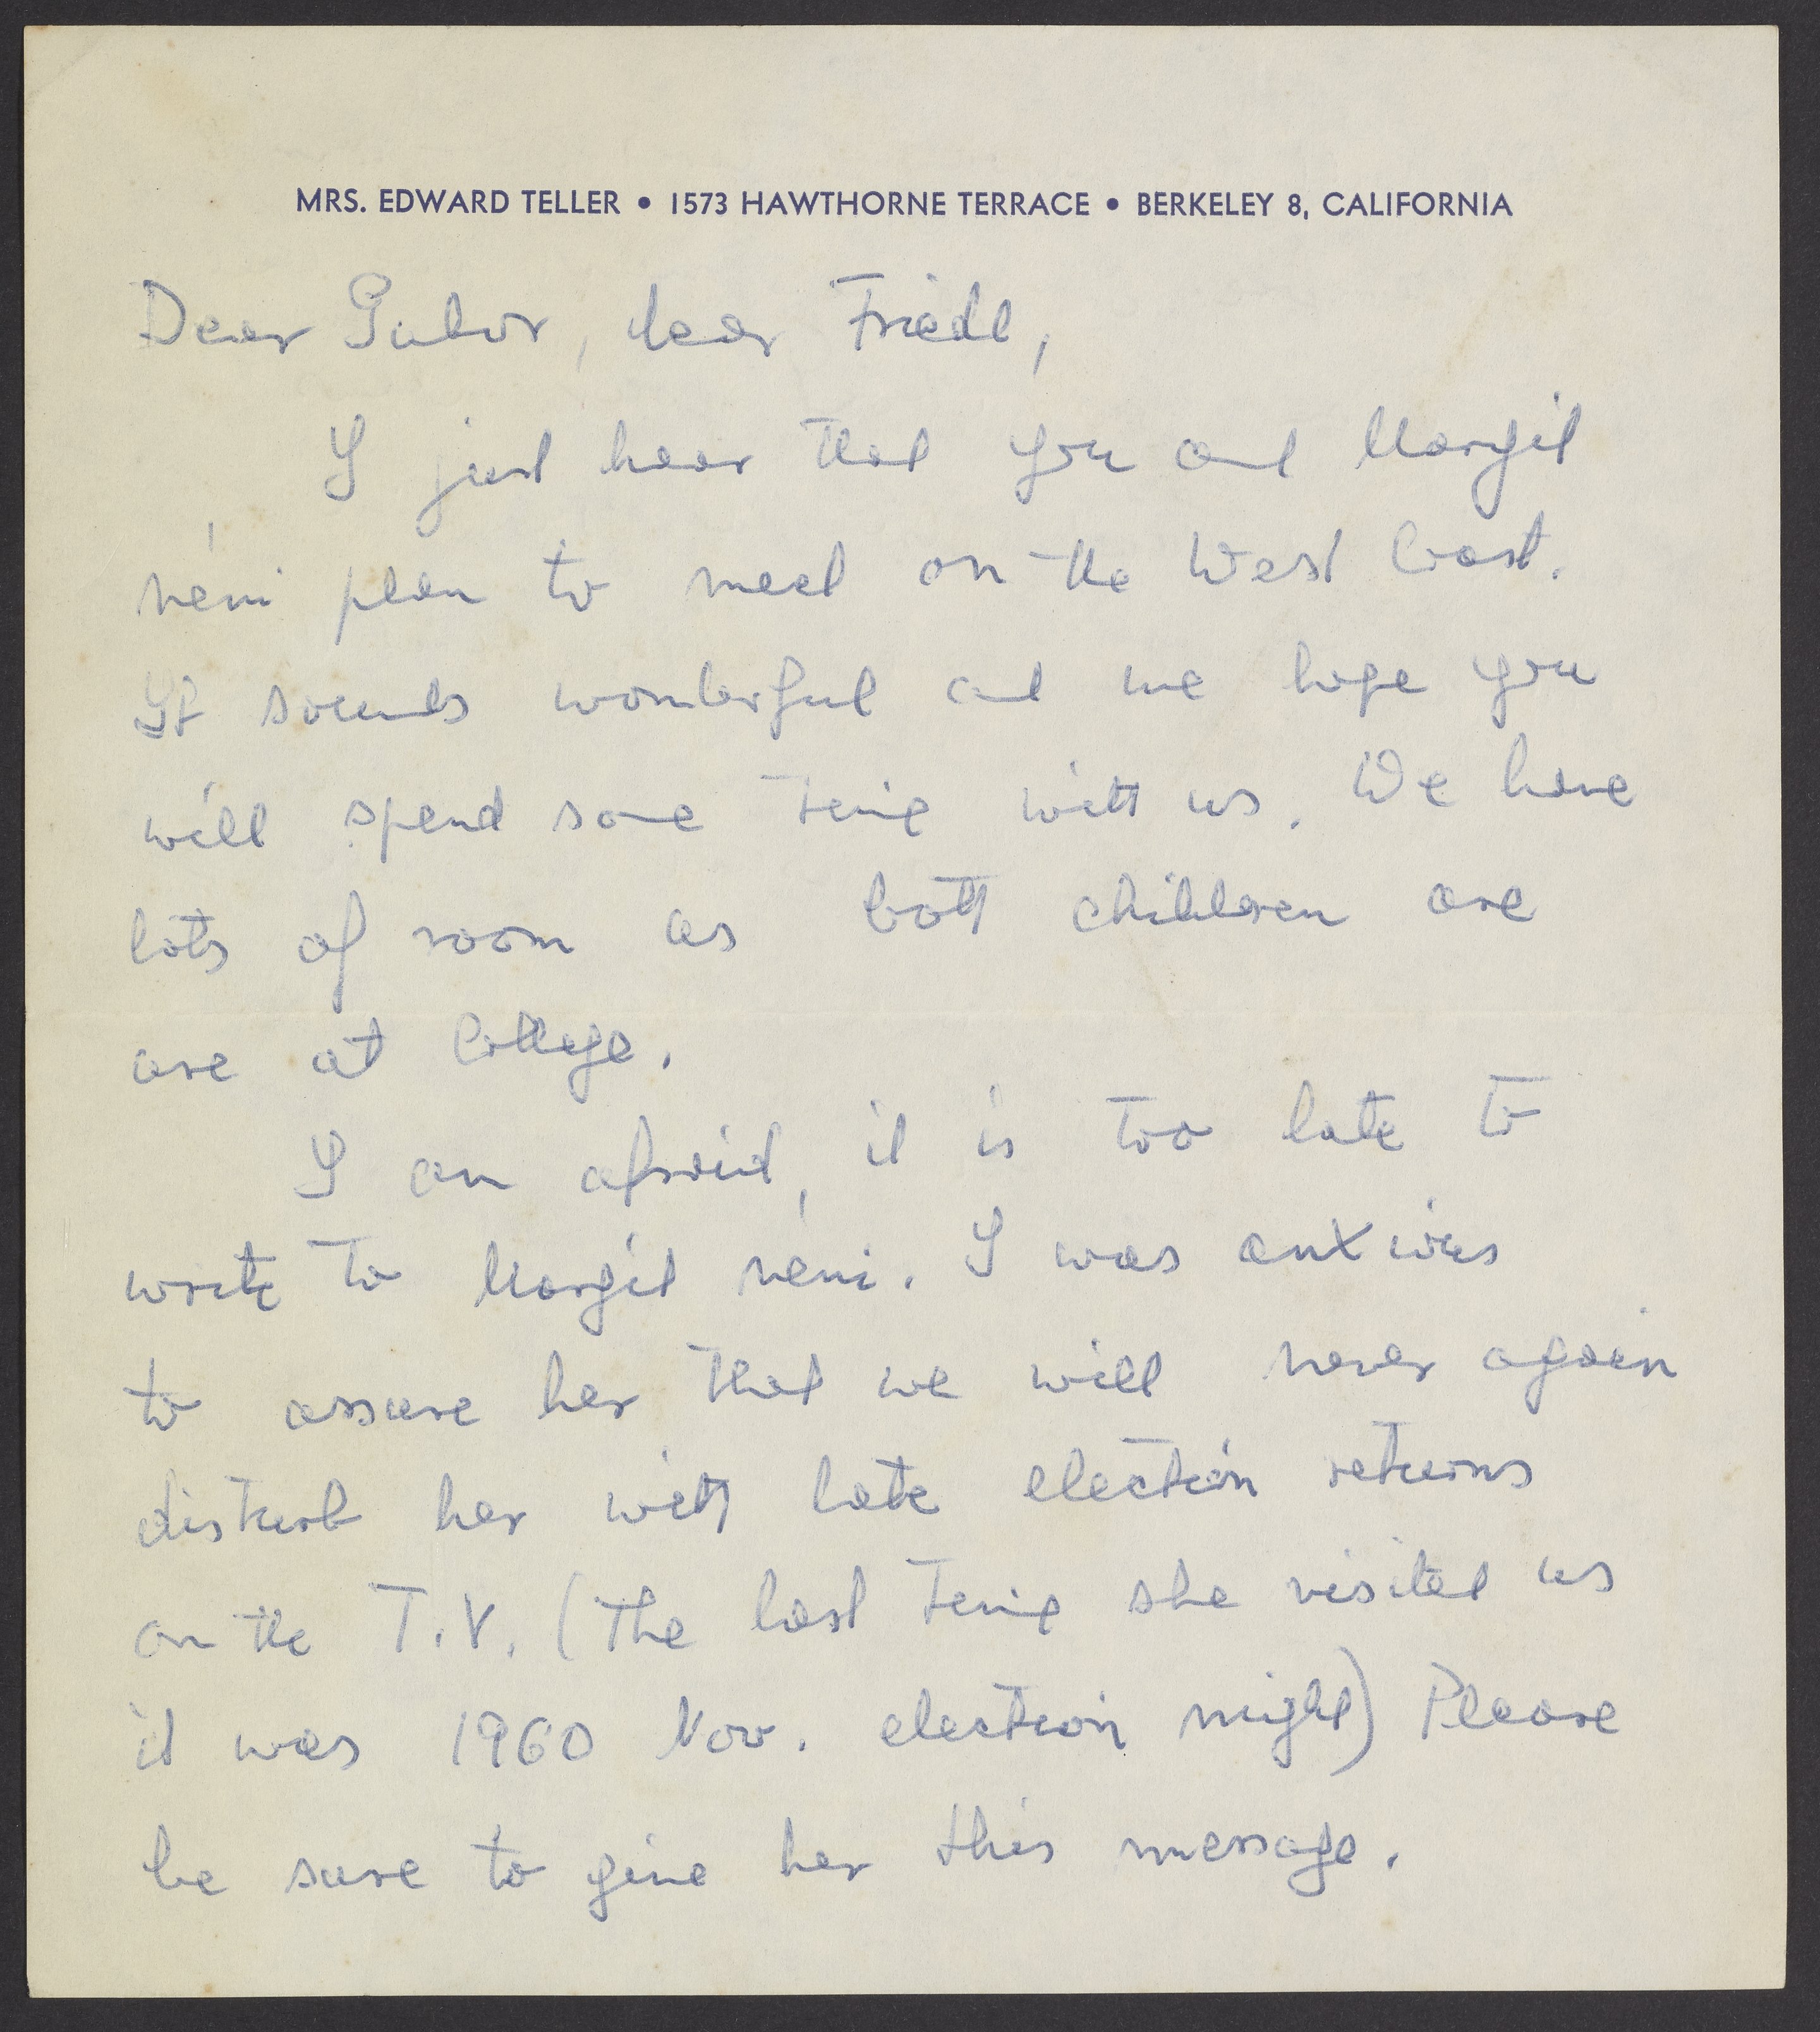 MRS. EDWARD TELLER • 1573 HAWTHORNE TERRACE • BERKELEY 8, CALIFORNIA
Dear Gabor, dear Friedl,
I just hear that you and Margit
néni plan to meet on the West Coast.
It sounds wonderful and we hope you
will spend some time with us. We have
lots of room as both children are
are at College.
I am afraid, it is too late to
write to Margit néni. I was anxious
to assure her that we will never again
disturb her with late election returns
on the T.V. (The last time she visited us
it was 1960 Nov. election night) Please
be sure to give her this message.